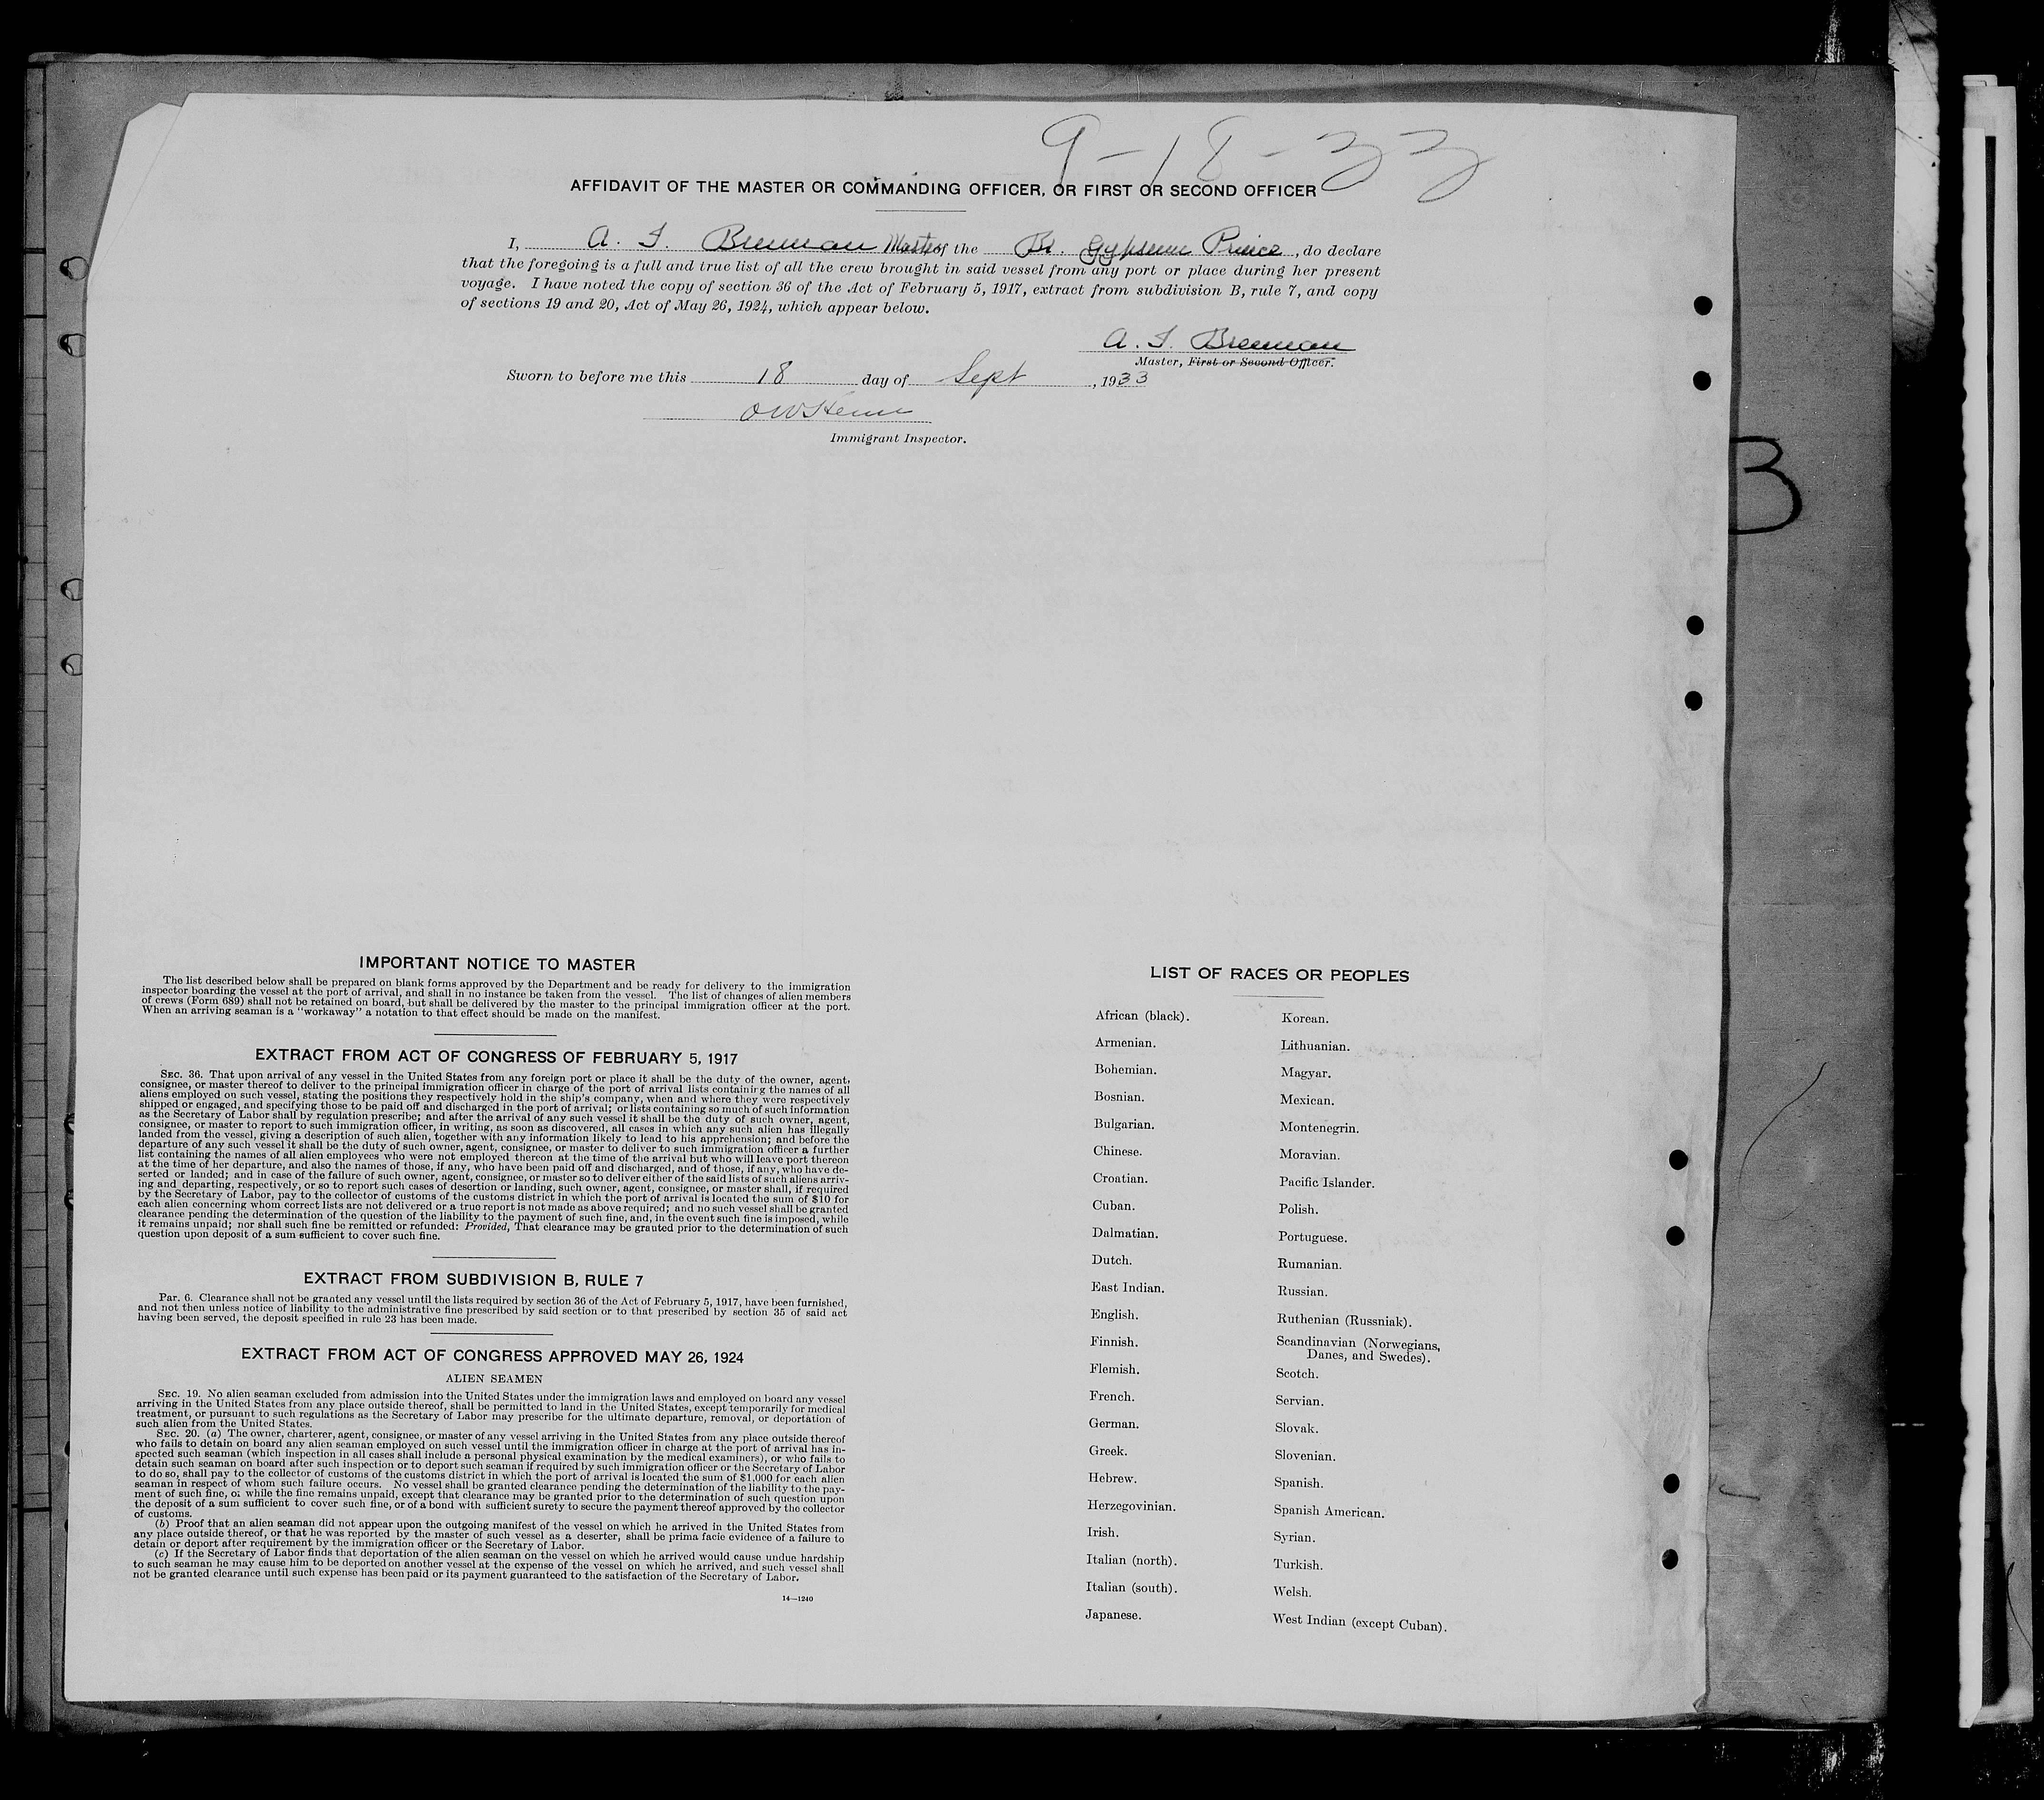 9-18-33
AFFIDAVIT OF THE MASTER OR COMMANDING OFFICER, OR FIRST OR SECOND OFFICER
I, A. Master of the Br. Gypsum Prince, do declare
that the foregoing is a full and true list of all the crew brought in said vessel from any port or place during her present
voyage. I have noted the copy of section 36 of the Act of February 5, 1917, extract from subdivision B, rule 7, and copy
of sections 19 and 20, Act of May 26, 1924, which appear below.
A.
Master, First or Second Officer.
Sworn to before me this 18 day of Sept, 1933
Immigrant Inspector.
B
IMPORTANT NOTICE TO MASTER
The list described below shall be prepared on blank forms approved by the Department and be ready for delivery to the immigration
inspector boarding the vessel at the port of arrival, and shall in no instance be taken from the vessel. The list of changes of alien members
of crews (Form 689) shall not be retained on board, but shall be delivered by the master to the principal immigration officer at the port.
When an arriving seaman is a "workaway" a notation to that effect should be made on the manifest.
EXTRACT FROM ACT OF CONGRESS OF FEBRUARY 5, 1917
SEC. 36. That upon arrival of any vessel in the United States from any foreign port or place it shall be the duty of the owner, agent,
consignee, or master thereof to deliver to the principal immigration officer in charge of the port of arrival lists containing the names of all
aliens employed on such vessel, stating the positions they respectively hold in the ship's company, when and where they were respectively
shipped or engaged, and specifying those to be paid off and discharged in the port of arrival; or lists containing so much of such information
as the Secretary of Labor shall by regulation prescribe; and after the arrival of any such vessel it shall be the duty of such owner, agent,
consignee, or master to report to such immigration officer, in writing, as soon as discovered, all cases in which any such alien has illegally
landed from the vessel, giving a description of such alien, together with any information likely to lead to his apprehension; and before the
departure of any such vessel it shall be the duty of such owner, agent, consignee, or master to deliver to such immigration officer a further
list containing the names of all alien employees who were not employed thereon at the time of the arrival but who will leave port thereon
at the time of her departure, and also the names of those, if any, who have been paid off and discharged, and of those, if any, who have de-
serted or landed; and in case of the failure of such owner, agent, consignee, or master so to deliver either of the said lists of such aliens arriv-
ing and departing, respectively, or so to report such cases of desertion or landing, such owner, agent, consignee, or master shall, if required
by the Secretary of Labor, pay to the collector of customs of the customs district in which the port of arrival is located the sum of $10 for
each alien concerning whom correct lists are not delivered or a true report is not made as above required; and no such vessel shall be granted
clearance pending the determination of the question of the liability to the payment of such fine, and, in the event such fine is imposed, while
it remains unpaid; nor shall such fine be remitted or refunded: Provided, That clearance may be granted prior to the determination of such
question upon deposit of a sum sufficient to cover such fine.
EXTRACT FROM SUBDIVISION B, RULE 7
Par. 6. Clearance shall not be granted any vessel until the lists required by section 36 of the Act of February 5, 1917, have been furnished,
and not then unless notice of liability to the administrative fine prescribed by said section or to that prescribed by section 35 of said act
having been served, the deposit specified in rule 23 has been made.
EXTRACT FROM ACT OF CONGRESS APPROVED MAY 26, 1924
ALIEN SEAMEN
SEC. 19. No alien seaman excluded from admission into the United States under the immigration laws and employed on board any vessel
arriving in the United States from any place outside thereof, shall be permitted to land in the United States, except temporarily for medical
treatment, or pursuant to such regulations as the Secretary of Labor may prescribe for the ultimate departure, removal, or deportation of
such alien from the United States.
SEC. 20. (a) The owner, charterer, agent, consignee, or master of any vessel arriving in the United States from any place outside thereof
who fails to detain on board any alien seaman employed on such vessel until the immigration officer in charge at the port of arrival has in-
spected such seaman (which inspection in all cases shall include a personal physical examination by the medical examiners), or who fails to
detain such seaman on board after such inspection or to deport such seaman if required by such immigration officer or the Secretary of Labor
to do so, shall pay to the collector of customs of the customs district in which the port of arrival is located the sum of $1,000 for each alien
seaman in respect of whom such failure occurs. No vessel shall be granted clearance pending the determination of the liability to the pay-
ment of such fine, or while the fine remains unpaid, except that clearance may be granted prior to the determination of such question upon
the deposit of a sum sufficient to cover such fine, or of a bond with sufficient surety to secure the payment thereof approved by the collector
of customs.
(b) Proof that an alien seaman did not appear upon the outgoing manifest of the vessel on which he arrived in the United States from
any place outside thereof, or that he was reported by the master of such vessel as a deserter, shall be prima facie evidence of a failure to
detain or deport after requirement by the immigration officer or the Secretary of Labor.
(c) If the Secretary of Labor finds that deportation of the alien seaman on the vessel on which he arrived would cause undue hardship
to such seaman he may cause him to be deported on another vessel at the expense of the vessel on which he arrived, and such vessel shall
not be granted clearance until such expense has been paid or its payment guaranteed to the satisfaction of the Secretary of Labor.
14—1240
LIST OF RACES OR PEOPLES
African (black).
Armenian.
Bohemian.
Bosnian.
Bulgarian.
Chinese.
Croatian.
Cuban.
Dalmatian.
Dutch.
East Indian.
English.
Finnish.
Flemish.
French.
German.
Greek.
Hebrew.
Herzegovinian.
Irish.
Italian (north).
Italian (south).
Japanese.
Korean.
Lithuanian.
Magyar.
Mexican.
Montenegrin.
Moravian.
Pacific Islander.
Polish.
Portuguese.
Rumanian.
Russian.
Ruthenian (Russniak).
Scandinavian (Norwegians,
Danes, and Swedes).
Scotch.
Servian.
Slovak.
Slovenian.
Spanish.
Spanish American.
Syrian.
Turkish.
Welsh.
West Indian (except Cuban).